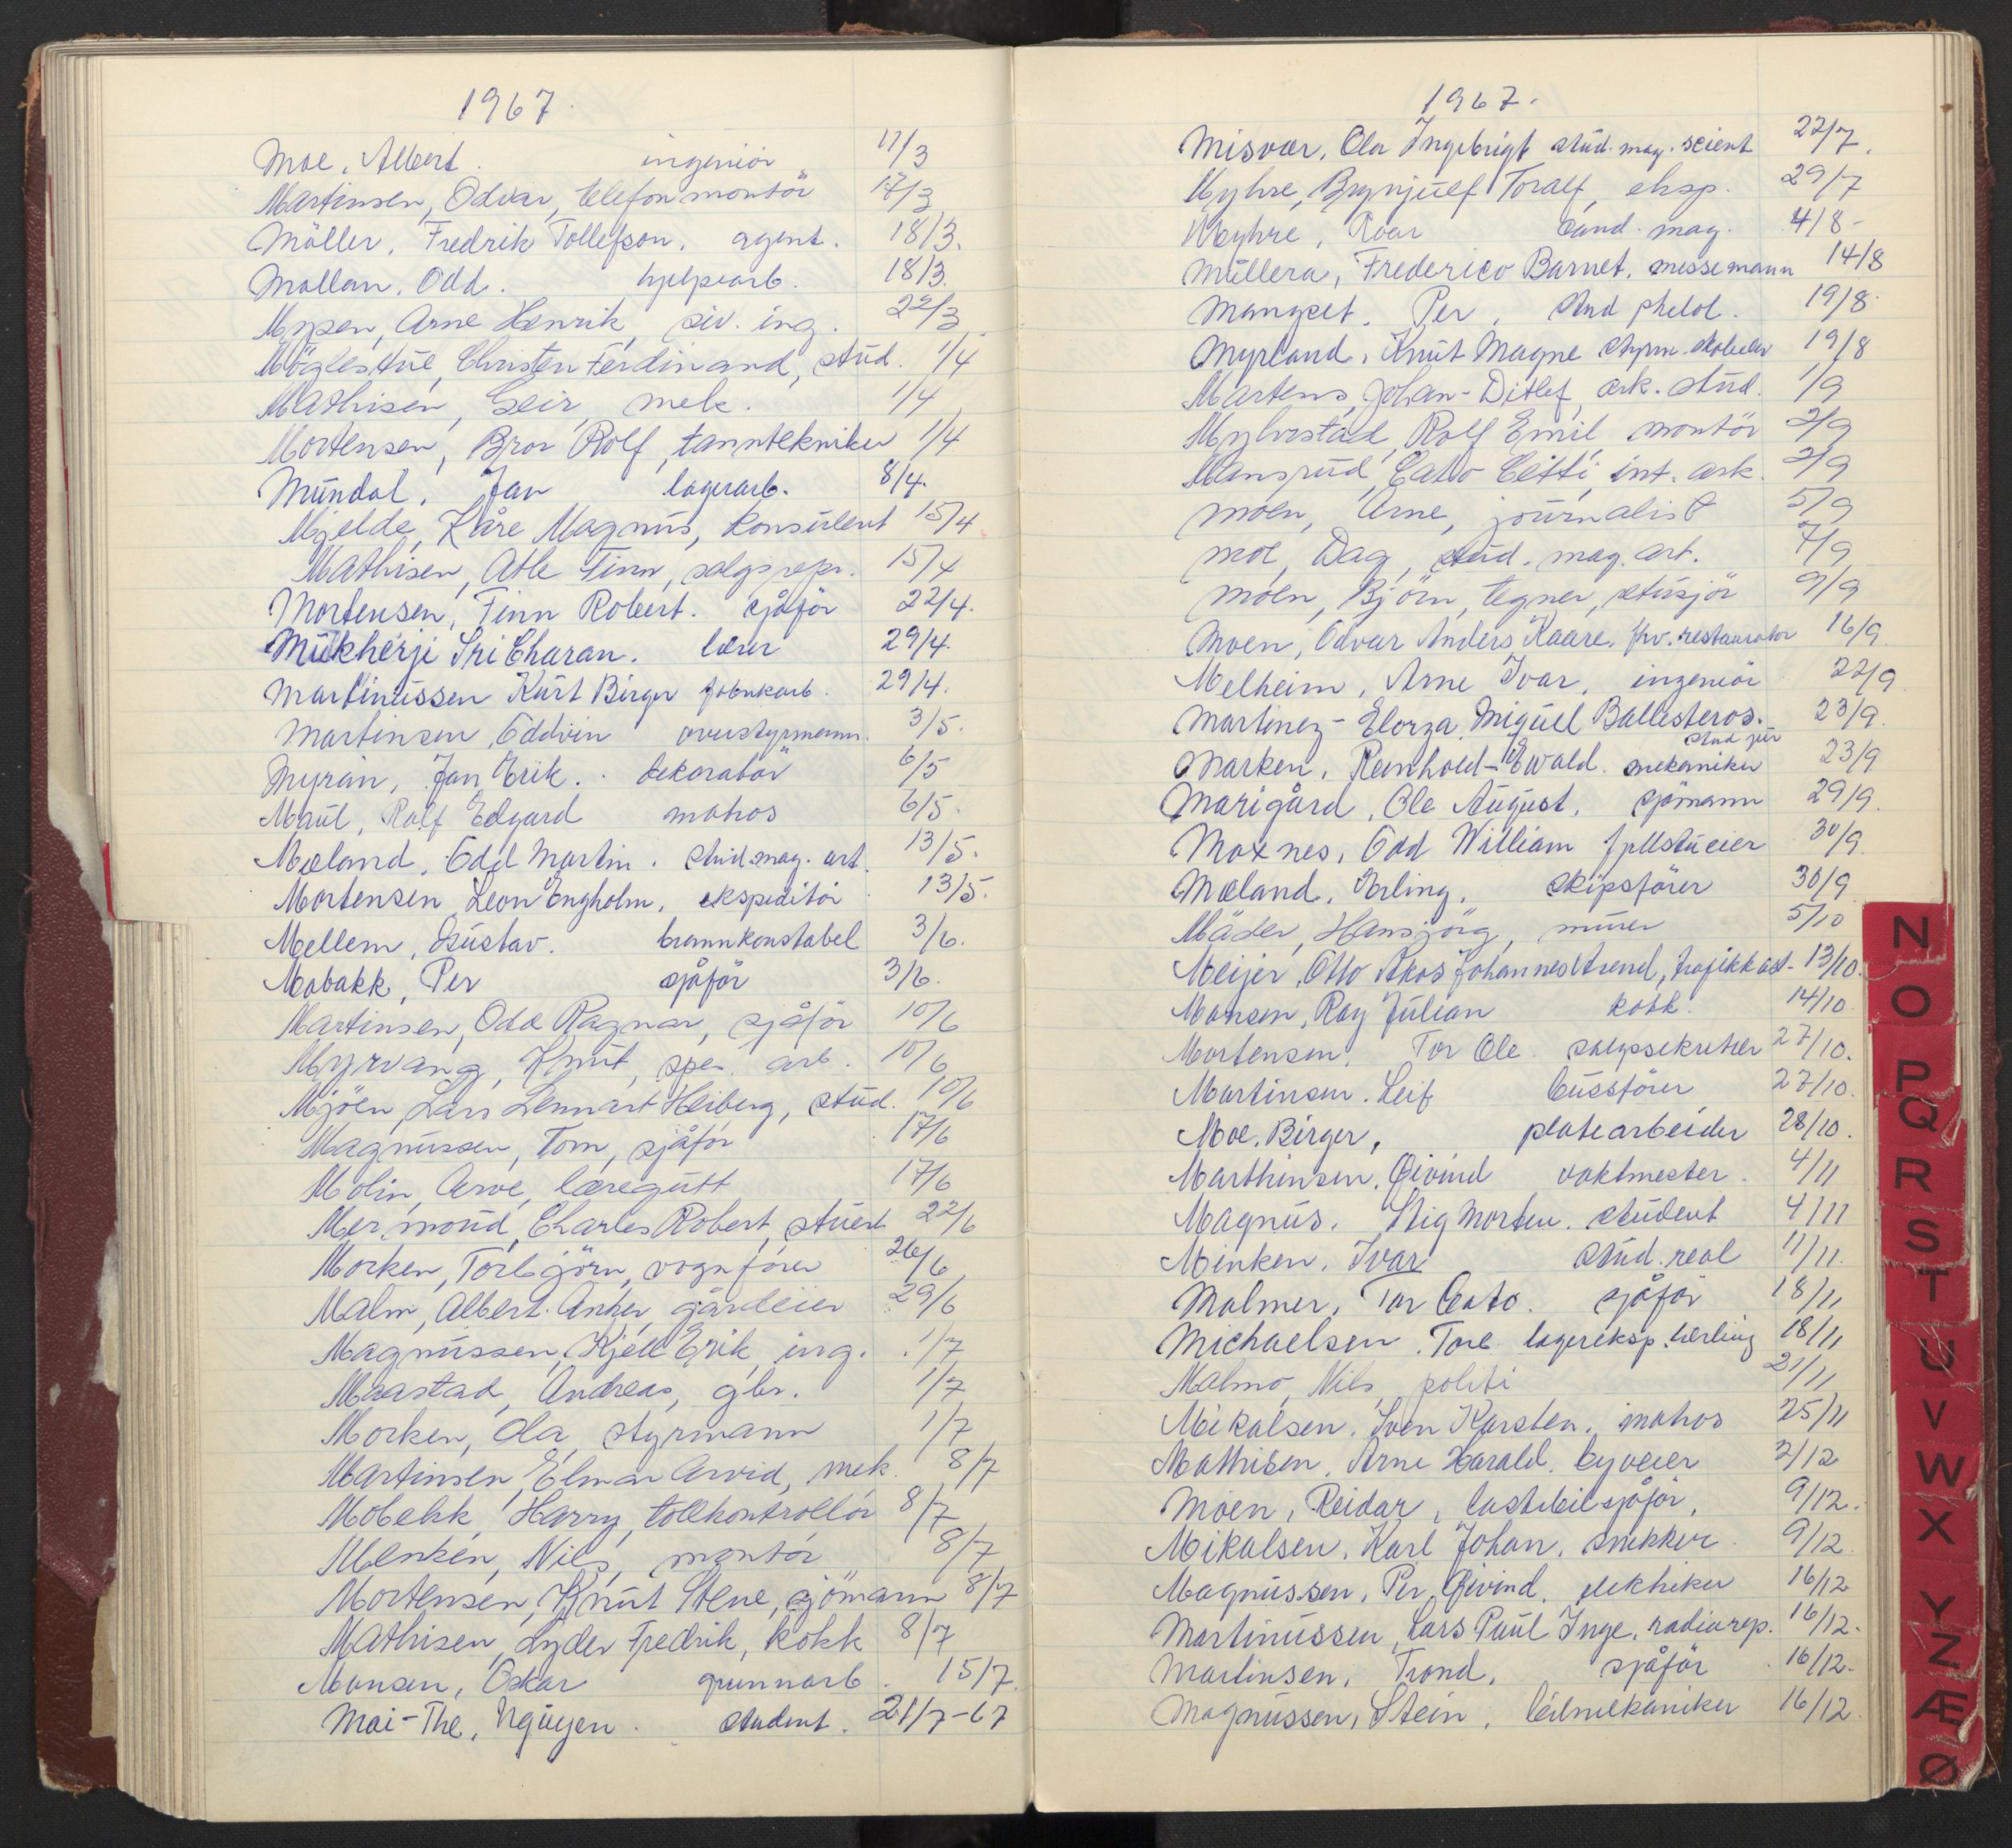 1967.
Moe, Albert. ingeniör 11/3
Martinsen, Odvar, telefonmontör 17/3
Möller, Fredrik Tollefson, agent. 18/3.
Mollan, Odd. hjelpearb. 18/3.
Mysen, Arne Henrik, siv. ing. 22/3
Möglestue, Christen Ferdinand, stud. 1/4
Mathisen, Geir, mek. 1/4
Mortensen, Bror Rolf, tanntekniker 1/4
Mundal, Jan lagerarb. 8/4.
Mjelde, Kåre Magnus, konsulent 15/4
Mathisen, Atle Finn, salgsrepr. 15/4
Mortensen, Finn Robert. sjåför 22/4.
Mukherji Sri Charan. lærer 29/4.
Martinussen Kurt Birger fabrikarb. 29/4.
Martinsen, Oddvin overstyrmann. 3/5.
Myran, Jan Erik. dekoratör 6/5
Maul, Rolf Edgard matros 6/5.
Mæland, Odd Martin. stud.mag. art. 13/5.
Mortensen, Leon Engholm, ekspeditör 13/5.
Mellem, Gustav. brannkonstabel 3/6.
Mobakk, Per sjåför 3/6.
Martinsen, Odd Ragnar, sjåför 10/6
Myrvang, Knut, spes. arb. 10/6
Mjöen, Lars Lennart Heiberg, stud. 10/6
Magnussen, Tom, sjåför 17/6
Molin, Arve, læregutt 17/6
Mermoud, Charles Robert, stuert 22/6
Morken, Torbjörn, vognförer 26/6
Malm, Albert Anker, gårdeier 29/6
Magnussen, Kjell Erik, ing. 1/7
Maastad, Andreas, gbr. 1/7
Morken, Ola, styrmann 1/7
Martinsen, Elmar Arvid, mek. 8/7
Mobekk, Harry, tollkontrollör 8/7
Menken, Nils, montör 8/7
Mortensen, Knut Stene, sjömann 8/7
Mathisen, Lyder Fredrik, kokk 8/7
Monsen, Oskar grunnarb. 15/7.
Mai-The, Nguyen. student. 21/7-67
1967.
Misvær, Ola Ingebrigt stud. mag. scient 22/7.
Myhre, Brynjulf Toralf, eksp. 29/7
Myhre, Roar cand. mag. 4/8-
Müllera, Frederico Barnet, messemann 14/8
Mangset, Per, stud philol. 19/8
Myrland, Knut Magne skoleelev 19/8
Martens, Johan-Ditlef, ark. stud. 1/9
Rolf Emil montör 2/9
Mansrud, Cato int. ark. 2/9
Moen, Arne, journalist 5/9
Moe, Dag, stud. mag. art. 7/9
Moen, Björn, tegner, 9/9
Moen, Odvar Anders Kaare, frv. restauratör 16/9
Melheim, Arne Ivar, ingeniör 22/9
Martinez-Elorza, Miguel Ballesteros. 23/9.
stud jur
Marken, Reinhold-Ewald. mekaniker 23/9
Marigård, Ole August, sjömann 29/9.
Moxnes, Odd William frv.eier 30/9
Mæland, Erling, skipsförer 30/9
Mäder, Hansjörg, murer 5/10
Meijer, Otto Akos Johannes Arend, trafikkass. 13/10.
Monsen, Roy Julian kokk. 14/10.
Mortensen, Tor Ole salgssekretær 27/10.
Martinsen, Leif bussförer 27/10.
Moe, Birger, platearbeider 28/10.
Marthinsen, Öivind vaktmester. 4/11
Magnus, Stig Morten. student 4/11
Minken, Ivar stud. real 11/11.
Malmer, Tor Cato. sjåför 18/11
Michaelsen, Tore lagereksp. lærling 18/11
Malmo, Nils, politi 21/11
Mikalsen, Sven Karsten, matros 25/11
Mathisen, Arne Harald. 2/12
Moen, Reidar, lastebilsjåför, 9/12.
Mikalsen, Karl Johan, snekker 9/12.
Magnussen, Per Öivind, elektriker 16/12
Martinussen, Lars Paul Inge, radiorep. 16/12.
Martinsen, Trond, sjåför 16/12.
Magnussen, Stein, bilmekaniker 16/12.
N
O
P
Q
R
S
T
U
V
W
X
Y
Z
Æ
Ø